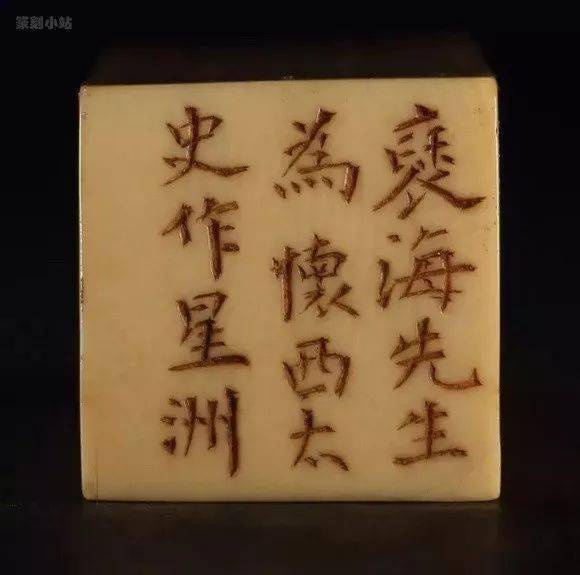 篆刻小站
海先生
為懷西太
史作星洲